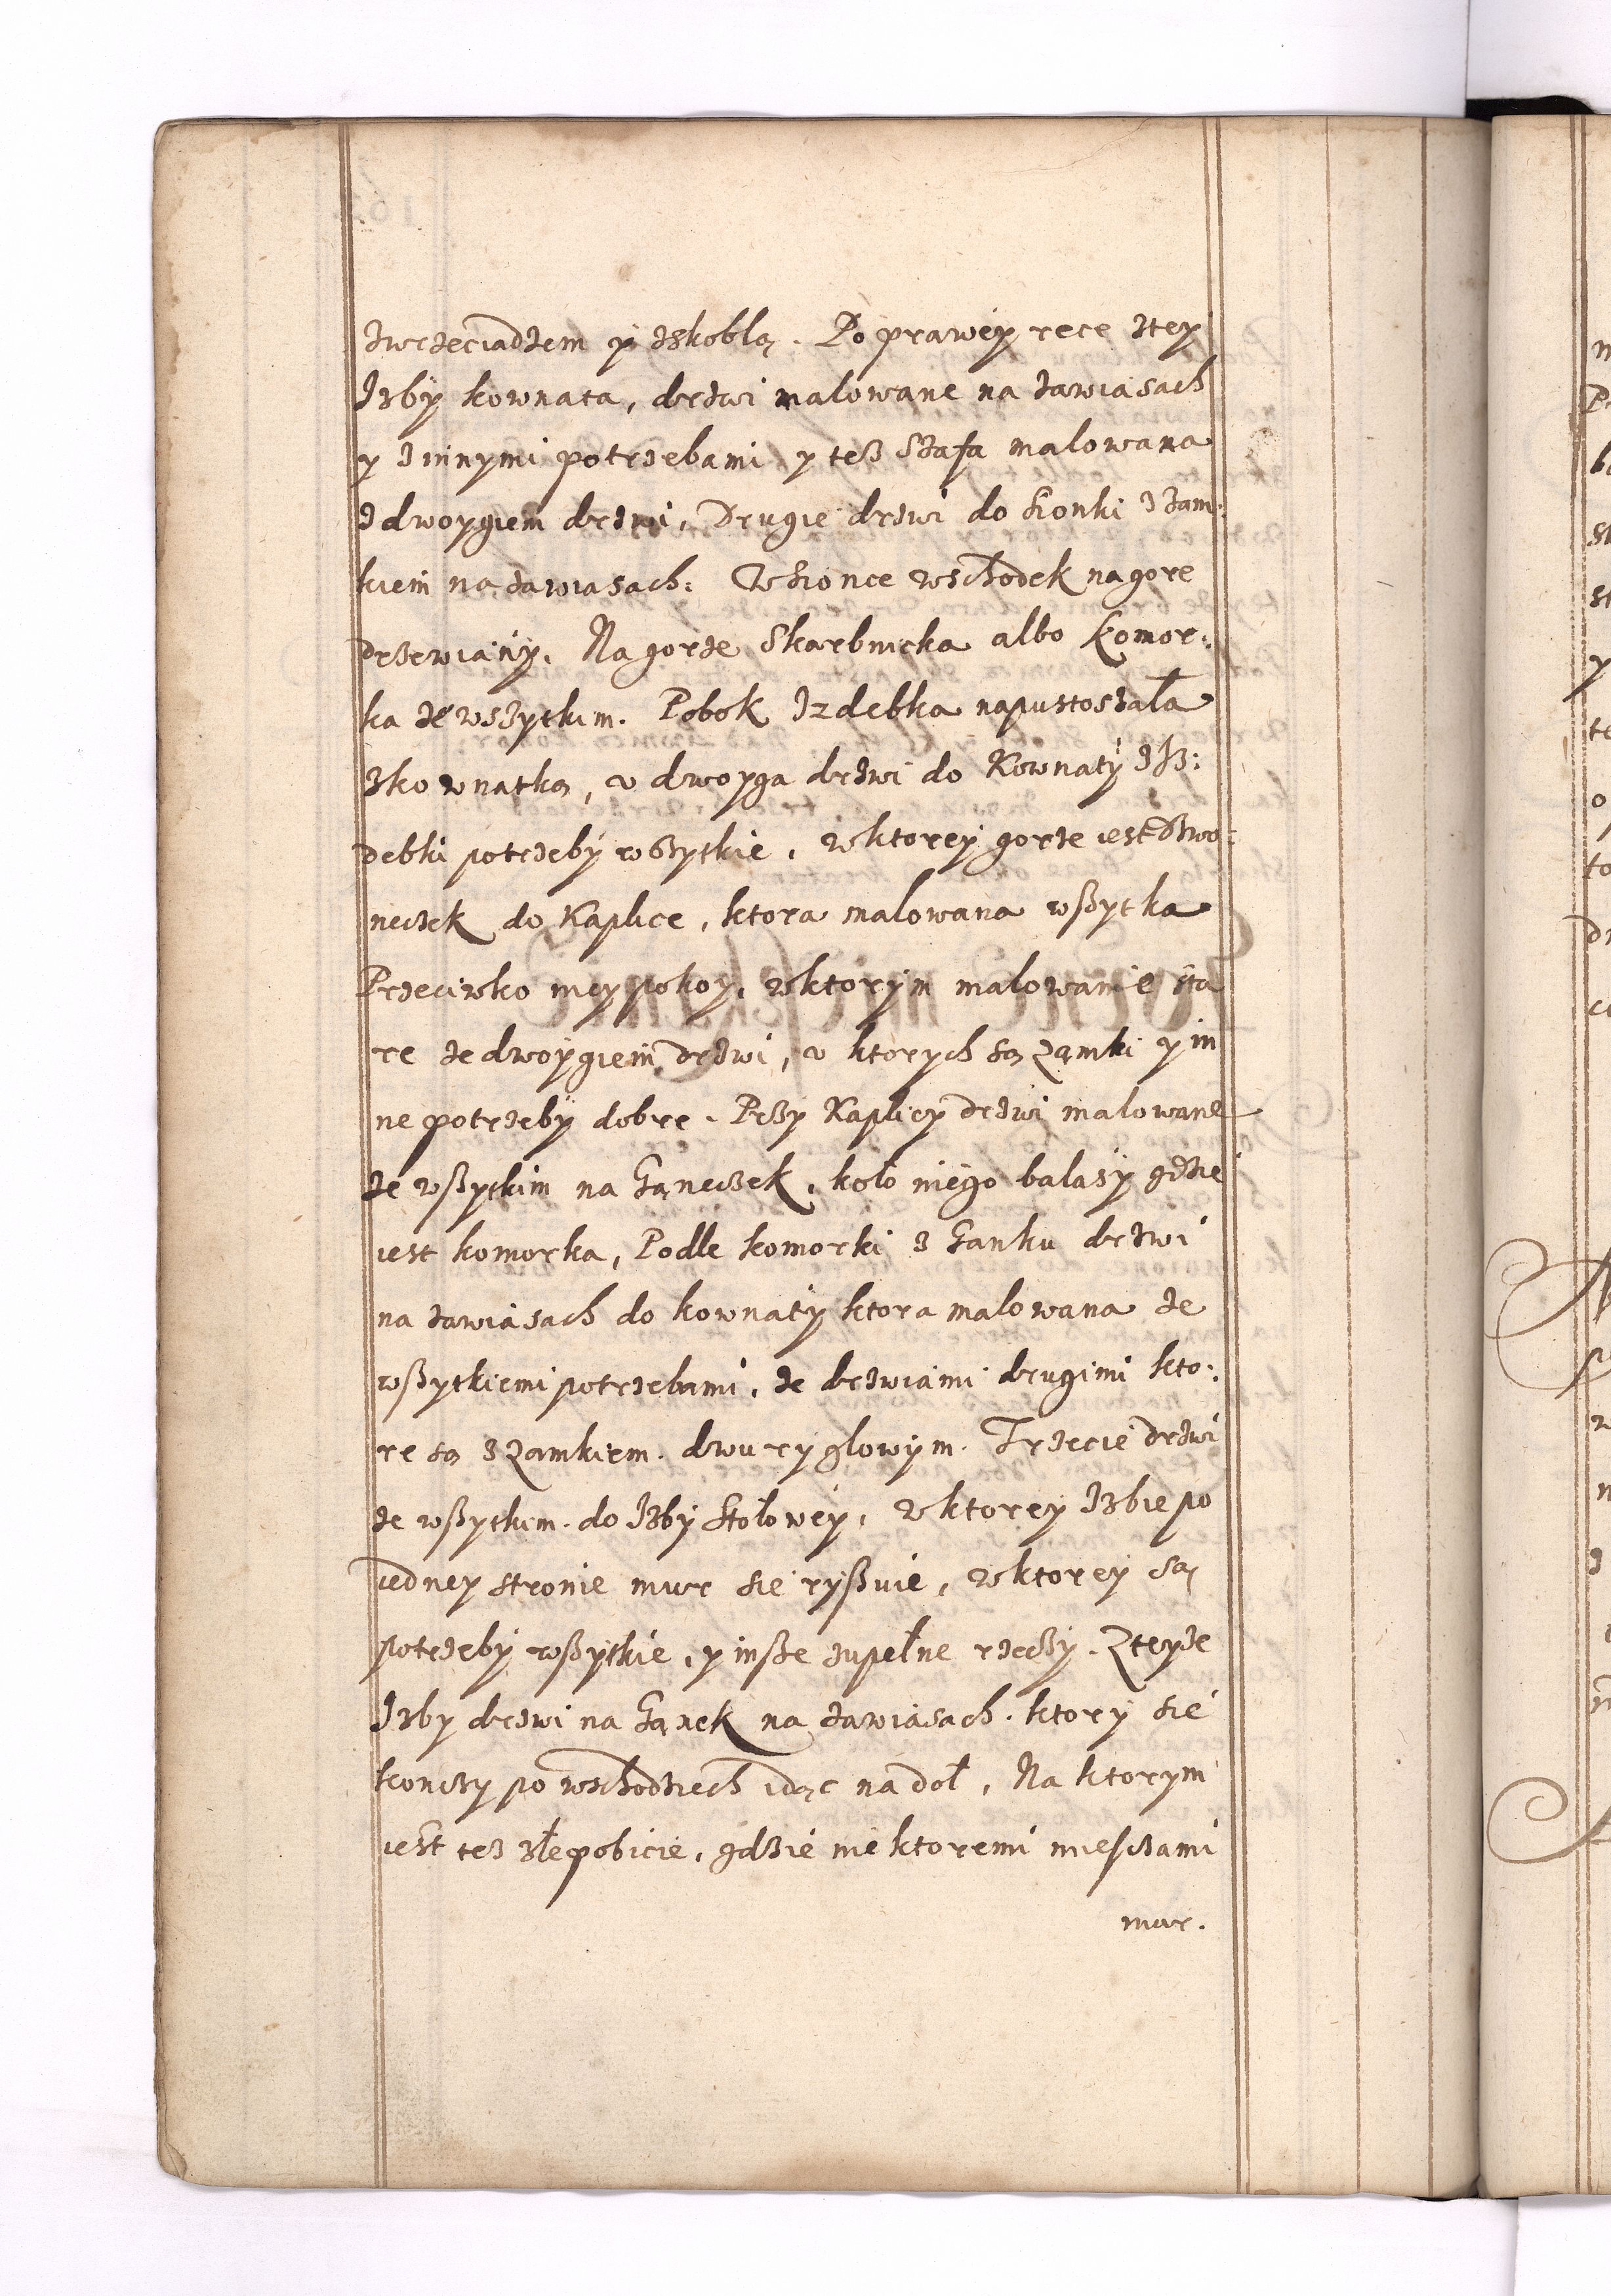 zwrzeciadzem y zskoblą. Po prawey rece ztey
Izby kownata, drzwi malowane na zawiasach
y zinnymi potrzebami y tesz Szafa malowana
z dwoygiem drzwi, Drugie drzwi do sionki z zam:
kiem na zawiasach: W sionce wschodek na gore
drzewiany. Na gorze Skarbnicka albo komor:
ka ze wszytkim. Pobok Izdebka napustoszała
zkownatką, v dwoyga drzwi do Kownaty Isz:
debki potrzeby wszytkie, w ktorey gorze iest Dzwo:
neczek do Kaplice, ktora malowana wszytka
Przeciwko niey pokoy, w ktorym malowanie sta
re ze dwoygiem drzwi, v ktorych są Zamki y in
ne potrzeby dobre. Przy Kaplicy drzwi malowane
ze wszytkim na Ganeczek, koło niego balasy gdzie
iest komorka, Podle komorki z Ganku drzwi
na zawiasach do kownaty ktora malowana ze
wszytkiemi potrzebami, ze drzwiami drugimi kto:
re są z Zamkiem dwuryglowym. Trzecie drzwi
ze wszytkim do Izby Stołowey, w ktorey Izbie po
iedney stronie mur sie ryszuie, w ktorey są
potrzeby wszytkie, y insze zupełne rzeczy. Zteyze
Izby drzwi na Ganek na zawiasach, ktory sie
konczy po wschodziech idąc na doł, Na ktorym
iest tez złe pobicie, gdzie niektoremi miesczami
mur.